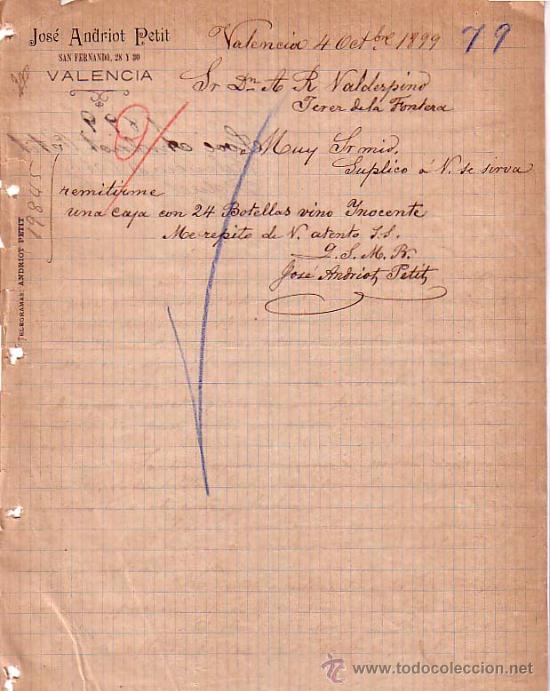 José Andriot Petit
SAN FERNANDO, 28 Y 30
VALENCIA
Valencia 4 Octbre 1899
79
Sr Dn A R Valdespino
Jerez de la Fontera
Muy Sr mio.
Suplico á V. se sirva
remitirme
una caja con 24 Botellas vino Inocente
Me repito de V. atento S.S.
Q. S. M. B.
José Andriot Petit
19845
TELEGRAMAS: ANDRIOT PETIT
www.todocoleccion.net